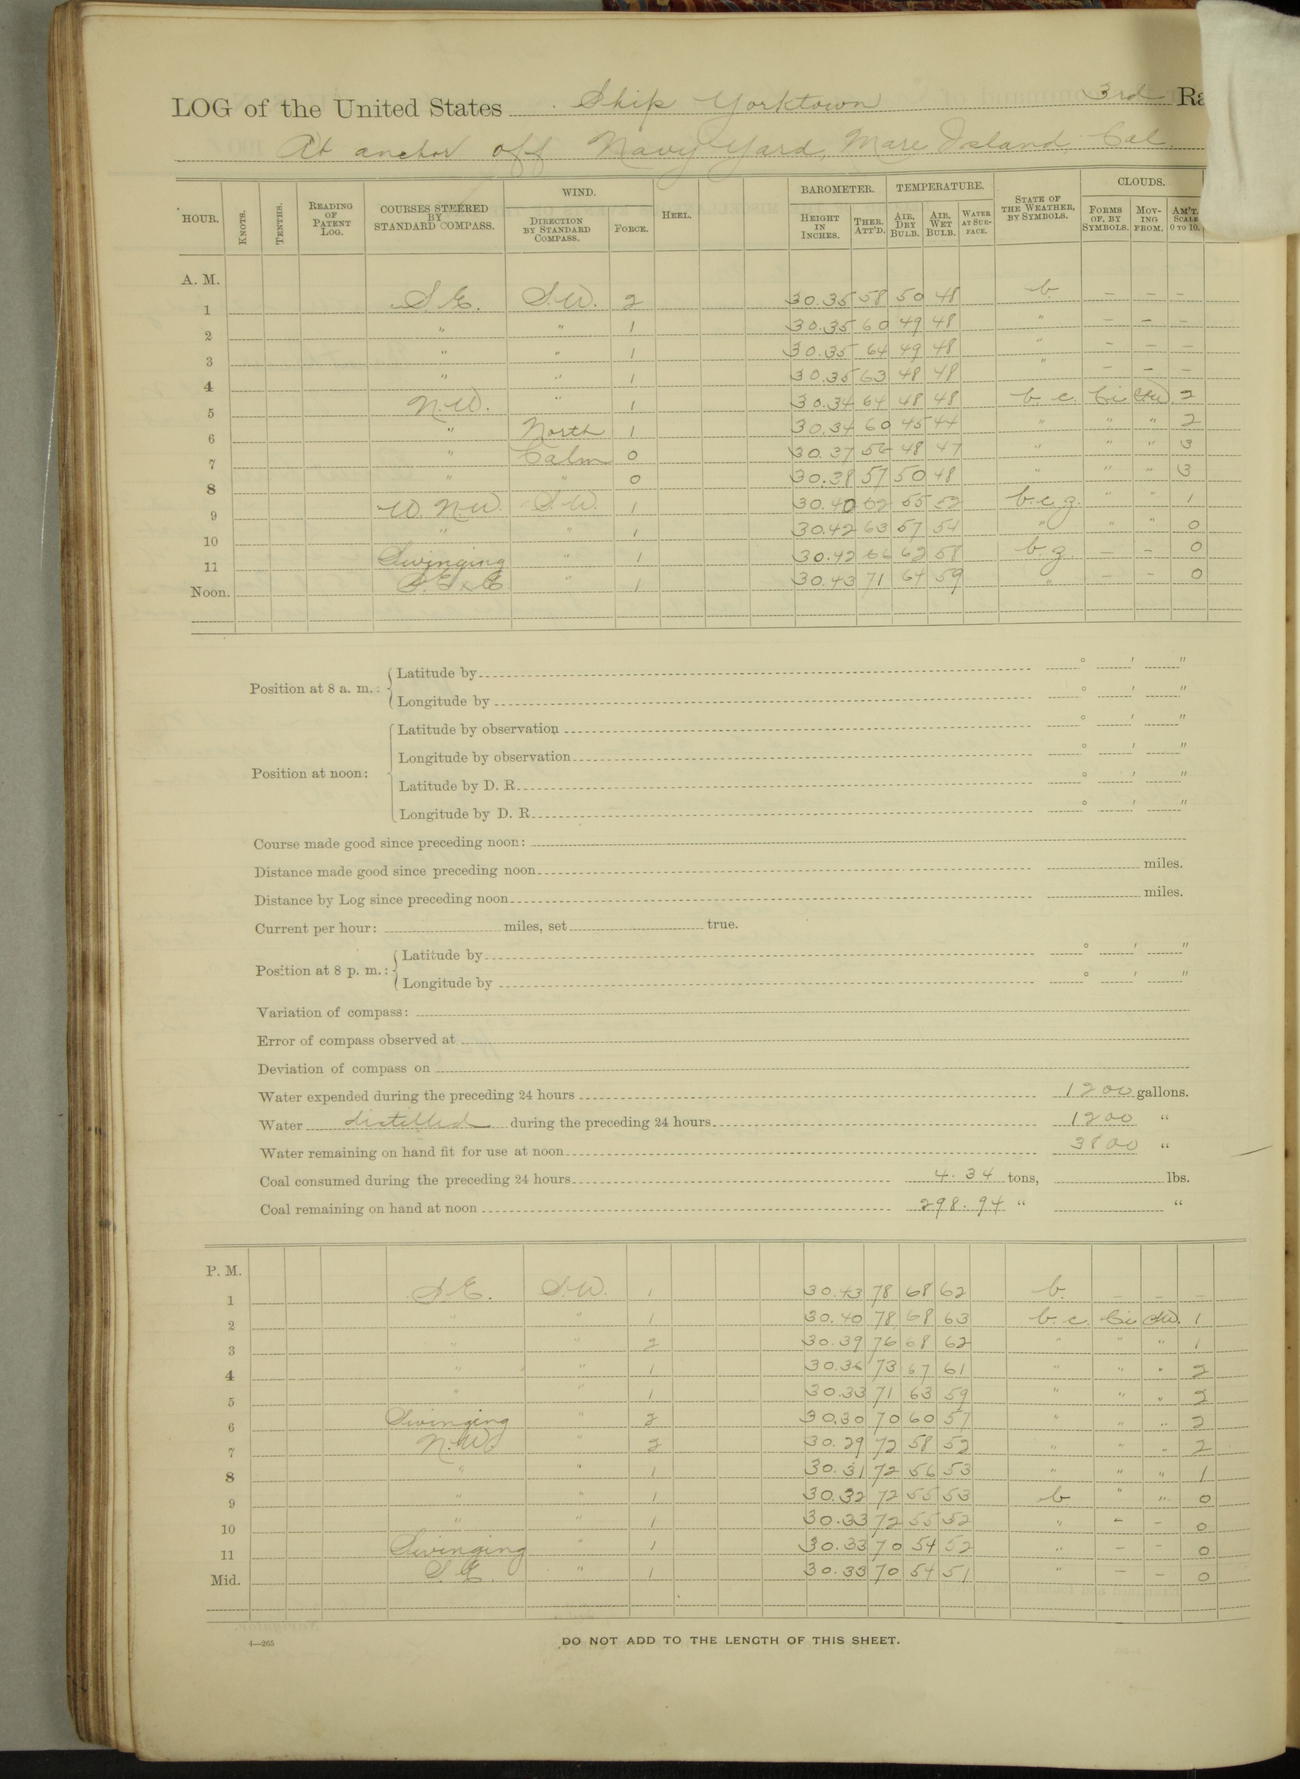 LOG of the United States Ship Yorktown 3rd Ra
At anchor off Navy Yard, Mare Island, Cal.
HOUR. KNOTS. TENTHS. READING OF PATENT LOG. COURSES STEERED BY STANDARD COMPASS. WIND. DIRECTION BY STANDARD COMPASS. FORCE. HEEL. BAROMETER. HEIGHT IN INCHES. THER. ATT'D. TEMPERATURE. AIR, DRY BULB. AIR, WET BULB. WATER AT SURFACE. STATE OF THE WEATHER, BY SYMBOLS. CLOUDS. FORMS OF, BY SYMBOLS. MOVING FROM. AM'T. SCALE 0 TO 10.
A. M.
1 S.E. S.W. 2 30.35 58 50 48 b. – – –
2 " " 1 30.35 60 49 48 " – – –
3 " " 1 30.35 64 49 48 " – – –
4 " " 1 30.35 63 48 48 " – – –
5 N.W. " 1 30.34 64 48 48 b. c. Ci SW 2
6 " North 1 30.34 60 45 44 " " " 2
7 " Calm 0 30.37 56 48 47 " " " 3
8 " " 0 30.38 57 50 48 " " " 3
9 W. N.W. S.W. 1 30.40 62 55 52 b.c.z. " " 1
10 " " 1 30.42 63 57 54 " " " 0
11 Swinging " 1 30.42 66 62 58 b z – – 0
Noon. S.E x E " 1 30.43 71 64 59 " – – 0
Position at 8 a. m.: Latitude by ° ' "
Longitude by ° ' "
Position at noon: Latitude by observation ° ' "
Longitude by observation ° ' "
Latitude by D. R. ° ' "
Longitude by D. R. ° ' "
Course made good since preceding noon:
Distance made good since preceding noon miles.
Distance by Log since preceding noon miles.
Current per hour: miles, set true.
Position at 8 p. m.: Latitude by ° ' "
Longitude by ° ' "
Variation of compass:
Error of compass observed at
Deviation of compass on
Water expended during the preceding 24 hours 1200 gallons.
Water distilled during the preceding 24 hours 1200 "
Water remaining on hand fit for use at noon 3800 "
Coal consumed during the preceding 24 hours 4.34 tons, lbs.
Coal remaining on hand at noon 298.94 " "
P. M.
1 S.E. S.W. 1 30.43 78 68 62 b. – – –
2 " " 1 30.40 78 68 63 b. c. Ci SW. 1
3 " " 2 30.39 76 68 62 " " " 1
4 " " 1 30.36 73 67 61 " " " 2
5 " " 1 30.33 71 63 59 " " " 2
6 Swinging " 2 30.30 70 60 57 " " " 2
7 N.W. " 2 30.29 72 58 52 " " " 2
8 " " 1 30.31 72 56 53 " " " 1
9 " " 1 30.32 72 55 53 b " " 0
10 " " 1 30.33 72 55 52 " – – 0
11 Swinging " 1 30.33 70 54 52 " – – 0
Mid. S.E. " 1 30.33 70 54 51 " – – 0
4—265
DO NOT ADD TO THE LENGTH OF THIS SHEET.